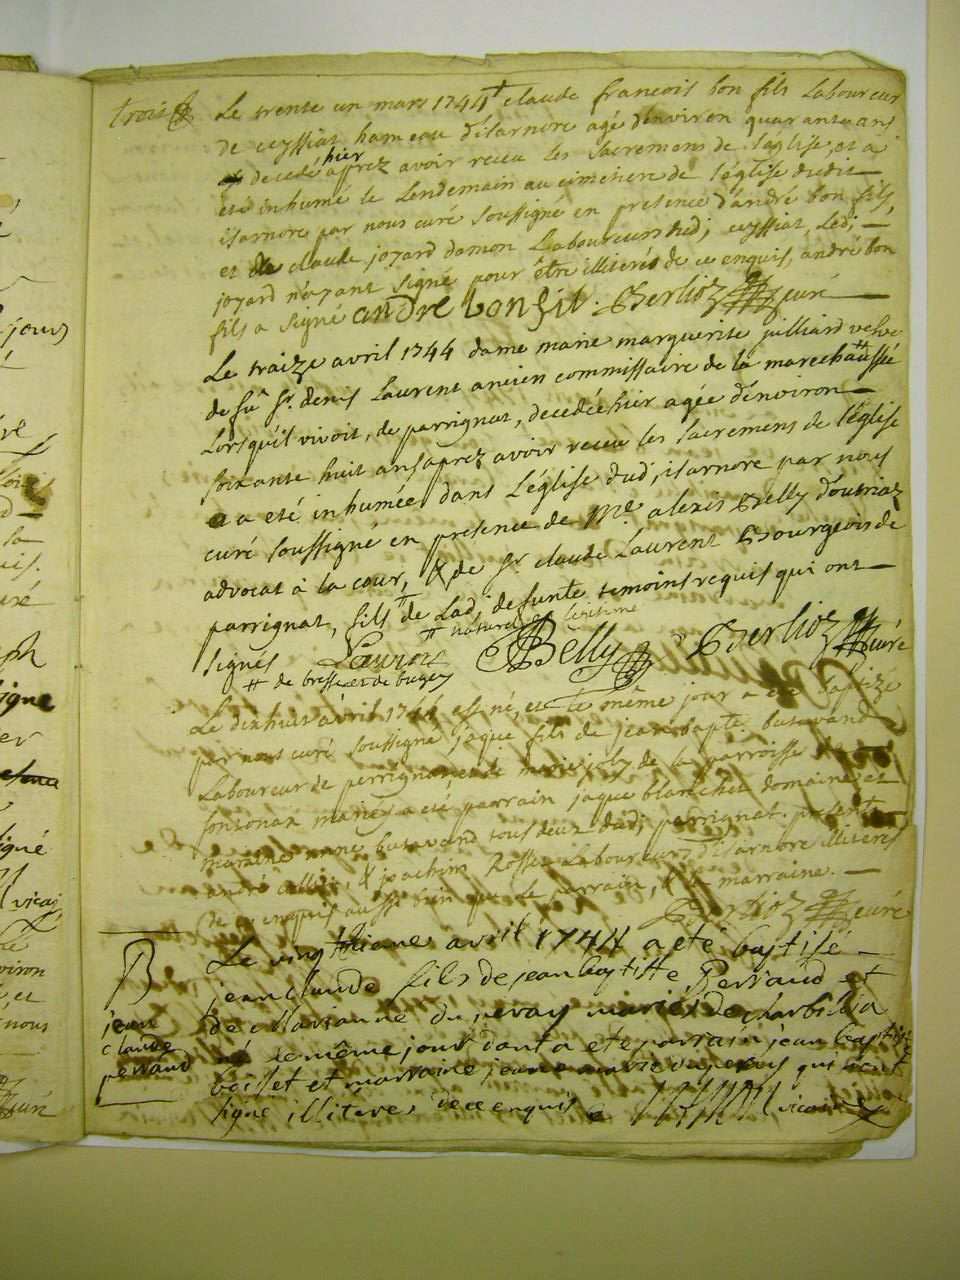 trois
Le trente un mars 1744 † claude francois bon fils Laboureur
de ceyssiat hameau d'isarnore agé d'environ quarante ans
decedé hier aprez avoir receu les sacremens de l'église, et a
eté inhumé le Lendemain au cimetiere de l'église dudit
isarnore par nous curé soussigné en presence d'andré bon fils,
et de claude joyard damon Laboureurs dud; ceyssiat, Led;
joyard n'ayant signé pour être illiterés de ce enquis, andré bon
fils a signé andre bonfit . Berlioz curé
Le traize avril 1744 dame marie marguerite juilliard vefve
de fû sr. denis Laurent ancien commissaire de la marechaussée #
Lorsqu'il vivoit, de parrignat, decedée hier agée d'environ
soixante huit ans aprez avoir receu les sacremens de l'église
a eté inhumée dans L'église dud; isarnore par nous
curé soussigné en presence de me. alexis Belly d'outriaz
advocat à la cour, & de sr. claude Laurent Bourgeois de
parrignat, fils # de Lad; defunte temoins requis qui ont
# naturel et legitime
signés Laurent Belly Berlioz curé
# de bresse et de bugey
Le dixhuit avril 1744 est né, et le même jour a eté baptizé
par nous curé soussigné jaque fils de jean bapte. butavand
Laboureur de perrignat, et de marie joly de la parroisse de
sonsonax mariés a eté parrain jaque blanchet domaine et
maraine anne butavand tous deux dud; perrignat. presents
andré callier, & joachim Rosset Laboureurs d'isarnore illiterés
de ce enquis aussi bien que le parrain, & la marraine.
Berlioz curé
B
jean
claude
perraud
Le vingthieme avril 1744 a eté baptisé
jean claude fils de jean baptiste Perraud et
de Marianne du peray mariés de charbillia
né le même jour dont a eté parrain jean baptiste
boisset et marraine jeanne marie duperay qui n'ont
signé illiteres de ce enquis vicaire